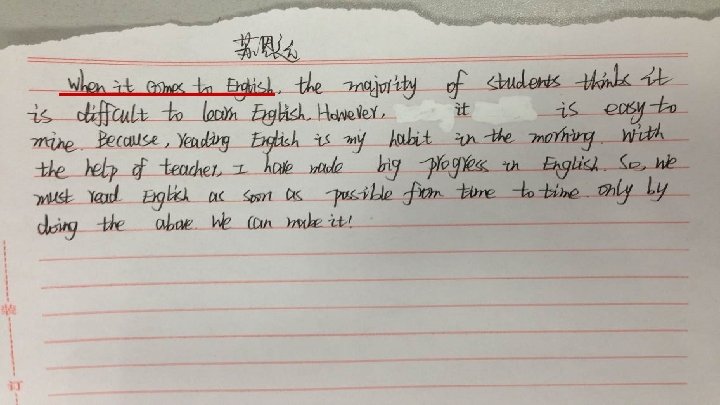 苏恩
When it comes to English, the majority of students thinks it
is diffcult to learn English. However, it is easy to
mine. Because, reading English is my habit in the morning. With
the help of teacher, I have made big progress in English. So, we
must read English as soon as possible from time to time. only by
doing the above. We can make it!
装
订